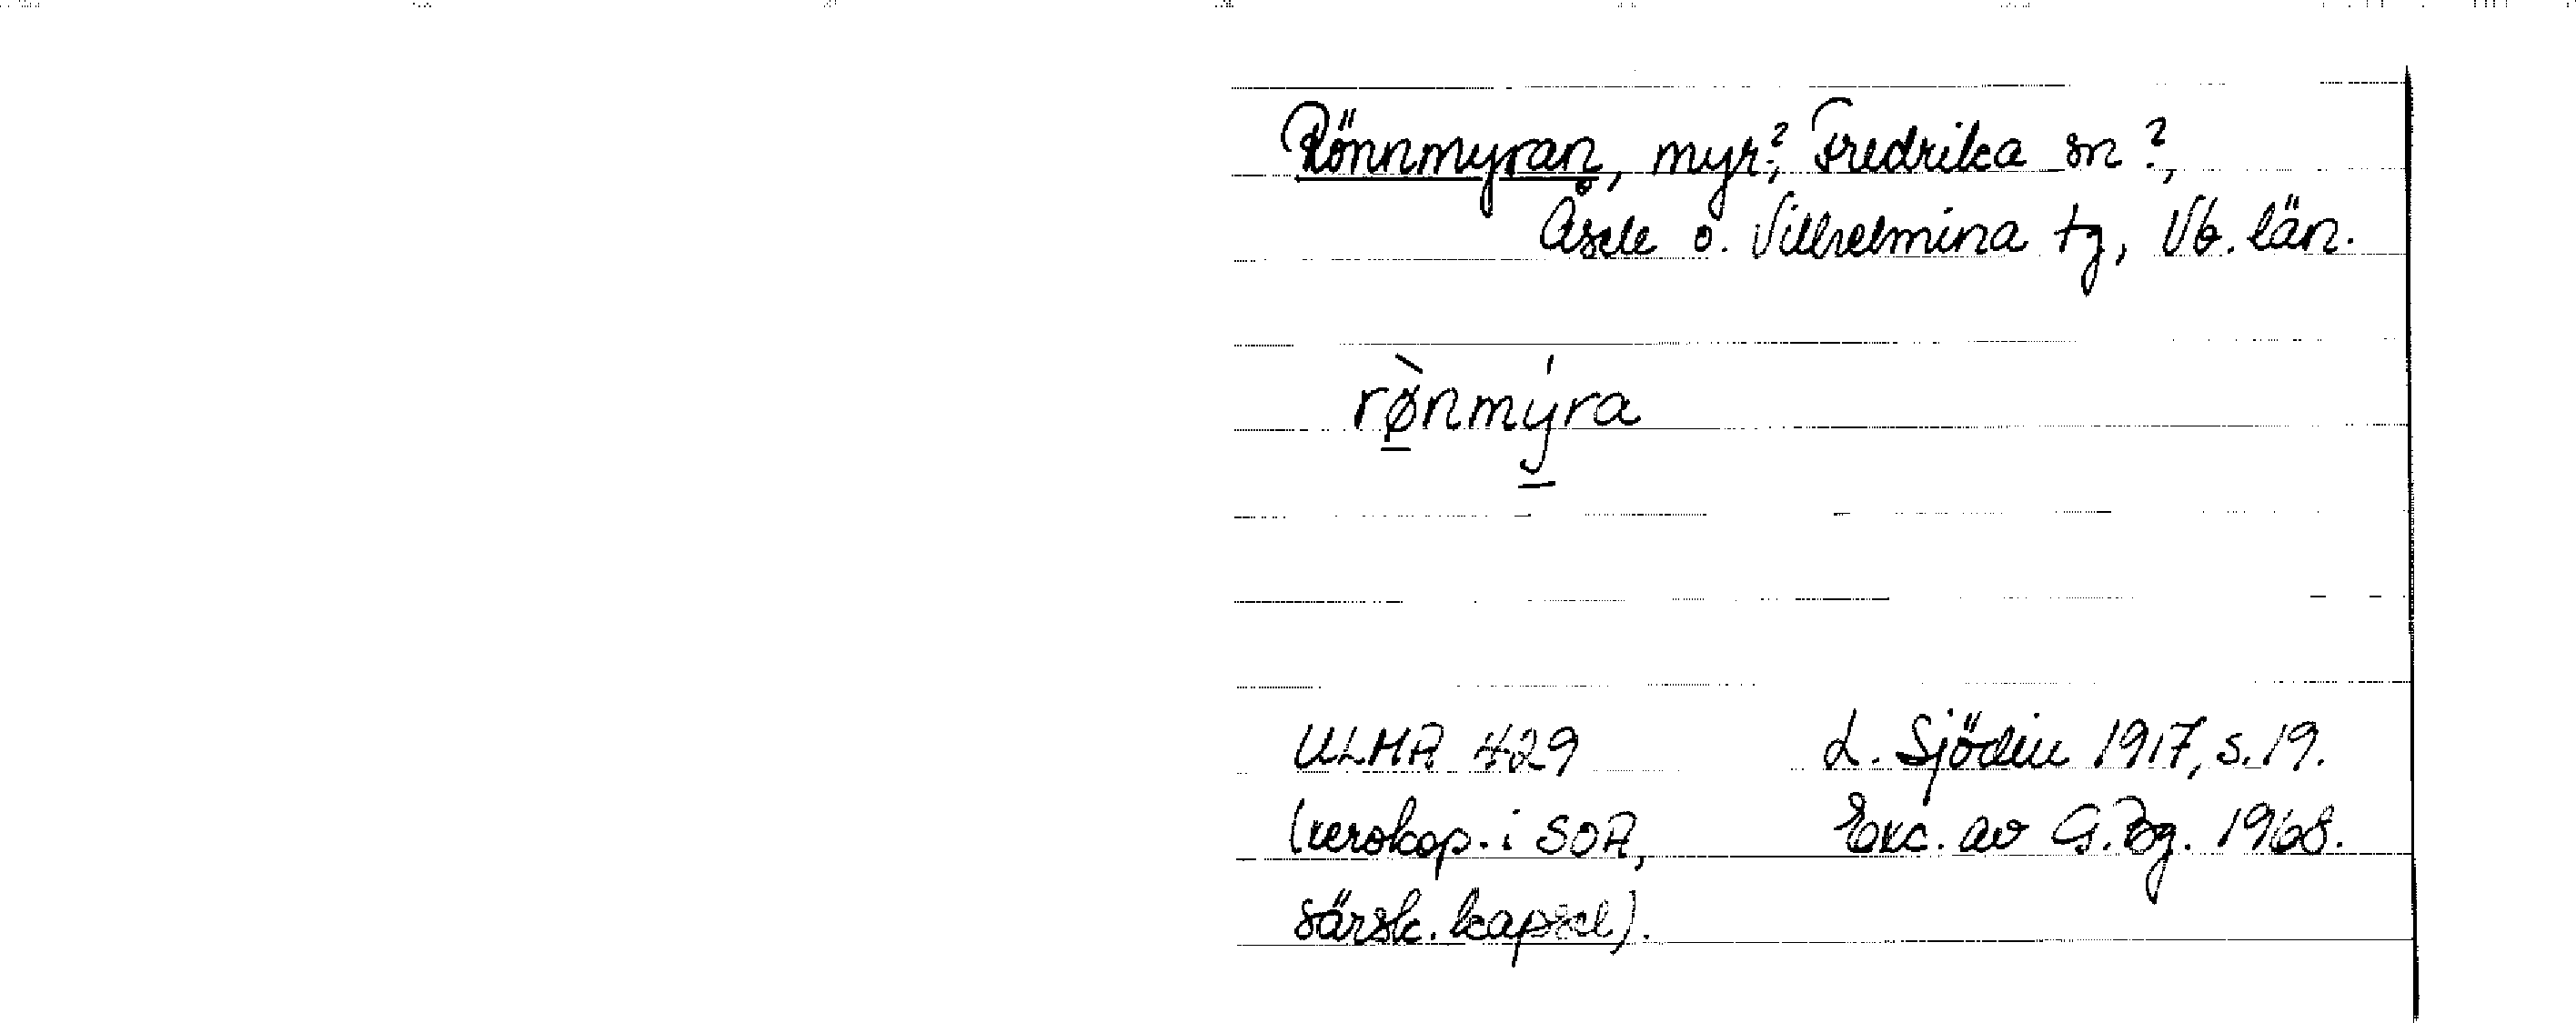 Rönnmyran, myr?, Fredrika sn?,
Åsele o. Vilhelmina tg, Vb. län.
rø̀nmýra
ULMA 429
L. Sjödin 1917, s. 19.
(xerokop. i SOA,
Exc. av G. Bg. 1968.
särsk. kapsel).